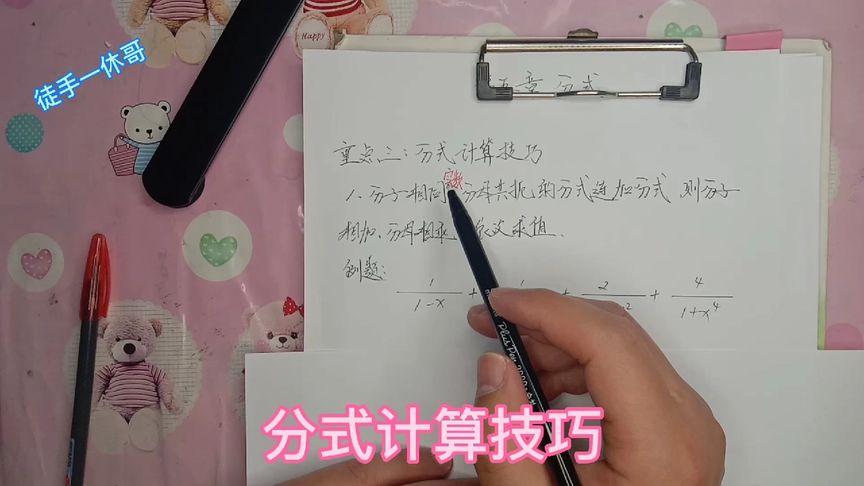 徒手一休哥
Happy
五章 分式
重点三:分式计算技巧
1. 分子相同 分母共轭的分式连加分式 则分子
相加、分母相乘 求值.
例题:
1/1-x + 1 + 2/2 + 4/1+x⁴
分式计算技巧